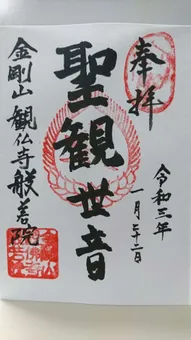 奉拝
令和三年
一月二十二日
聖観世音
金剛山 観仏寺般若院